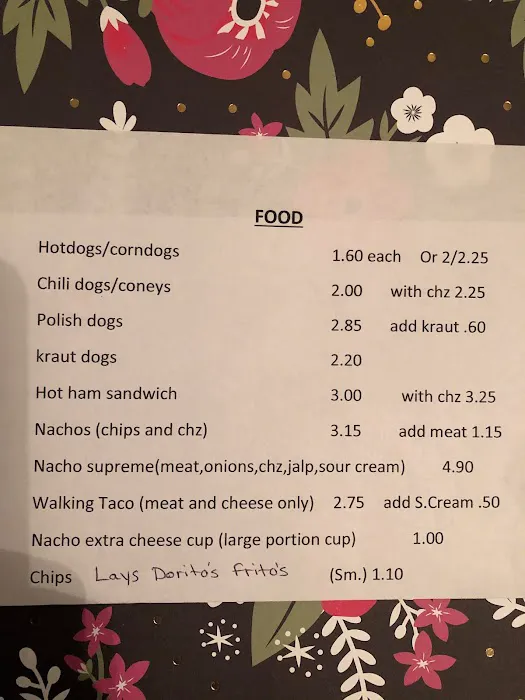 FOOD
Hotdogs/corndogs 1.60 each Or 2/2.25
Chili dogs/coneys 2.00 with chz 2.25
Polish dogs 2.85 add kraut .60
kraut dogs 2.20
Hot ham sandwich 3.00 with chz 3.25
Nachos (chips and chz) 3.15 add meat 1.15
Nacho supreme(meat,onions,chz,jalp,sour cream) 4.90
Walking Taco (meat and cheese only) 2.75 add S.Cream .50
Nacho extra cheese cup (large portion cup) 1.00
Chips Lays Dorito's frito's (Sm.) 1.10